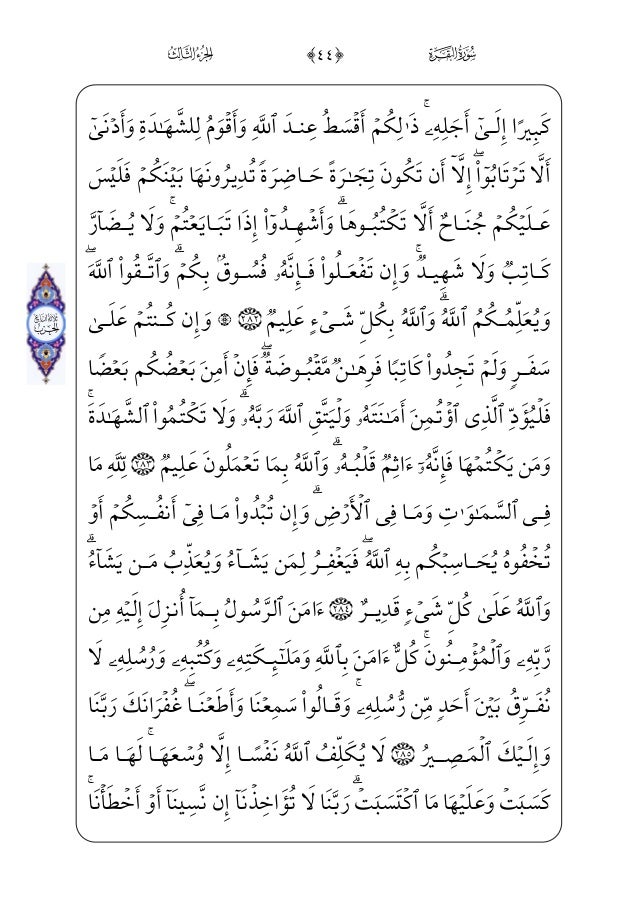 سُورَةُ البَقَرَة ﴿٤٤﴾ الجُزءُ الثَّالِث
كَبِيرًا إِلَىٰٓ أَجَلِهِۦۚ ذَٰلِكُمۡ أَقۡسَطُ عِندَ ٱللَّهِ وَأَقۡوَمُ لِلشَّهَٰدَةِ وَأَدۡنَىٰٓ
أَلَّا تَرۡتَابُوٓاْۖ إِلَّآ أَن تَكُونَ تِجَٰرَةً حَاضِرَةٗ تُدِيرُونَهَا بَيۡنَكُمۡ فَلَيۡسَ
عَلَيۡكُمۡ جُنَاحٌ أَلَّا تَكۡتُبُوهَاۗ وَأَشۡهِدُوٓاْ إِذَا تَبَايَعۡتُمۡۚ وَلَا يُضَآرَّ
كَاتِبٞ وَلَا شَهِيدٞۚ وَإِن تَفۡعَلُواْ فَإِنَّهُۥ فُسُوقُۢ بِكُمۡۗ وَٱتَّقُواْ ٱللَّهَۖ
وَيُعَلِّمُكُمُ ٱللَّهُۗ وَٱللَّهُ بِكُلِّ شَيۡءٍ عَلِيمٞ ٢٨٢ ۞ وَإِن كُنتُمۡ عَلَىٰ
سَفَرٖ وَلَمۡ تَجِدُواْ كَاتِبٗا فَرِهَٰنٞ مَّقۡبُوضَةٞۖ فَإِنۡ أَمِنَ بَعۡضُكُم بَعۡضٗا
فَلۡيُؤَدِّ ٱلَّذِي ٱؤۡتُمِنَ أَمَٰنَتَهُۥ وَلۡيَتَّقِ ٱللَّهَ رَبَّهُۥۗ وَلَا تَكۡتُمُواْ ٱلشَّهَٰدَةَۚ
وَمَن يَكۡتُمۡهَا فَإِنَّهُۥٓ ءَاثِمٞ قَلۡبُهُۥۗ وَٱللَّهُ بِمَا تَعۡمَلُونَ عَلِيمٞ ٢٨٣ لِّلَّهِ مَا
فِي ٱلسَّمَٰوَٰتِ وَمَا فِي ٱلۡأَرۡضِۗ وَإِن تُبۡدُواْ مَا فِيٓ أَنفُسِكُمۡ أَوۡ
تُخۡفُوهُ يُحَاسِبۡكُم بِهِ ٱللَّهُۖ فَيَغۡفِرُ لِمَن يَشَآءُ وَيُعَذِّبُ مَن يَشَآءُۗ
وَٱللَّهُ عَلَىٰ كُلِّ شَيۡءٖ قَدِيرٌ ٢٨٤ ءَامَنَ ٱلرَّسُولُ بِمَآ أُنزِلَ إِلَيۡهِ مِن
رَّبِّهِۦ وَٱلۡمُؤۡمِنُونَۚ كُلٌّ ءَامَنَ بِٱللَّهِ وَمَلَٰٓئِكَتِهِۦ وَكُتُبِهِۦ وَرُسُلِهِۦ لَا
نُفَرِّقُ بَيۡنَ أَحَدٖ مِّن رُّسُلِهِۦۚ وَقَالُواْ سَمِعۡنَا وَأَطَعۡنَاۖ غُفۡرَانَكَ رَبَّنَا
وَإِلَيۡكَ ٱلۡمَصِيرُ ٢٨٥ لَا يُكَلِّفُ ٱللَّهُ نَفۡسًا إِلَّا وُسۡعَهَاۚ لَهَا مَا
كَسَبَتۡ وَعَلَيۡهَا مَا ٱكۡتَسَبَتۡۗ رَبَّنَا لَا تُؤَاخِذۡنَآ إِن نَّسِينَآ أَوۡ أَخۡطَأۡنَاۚ
الحِزب